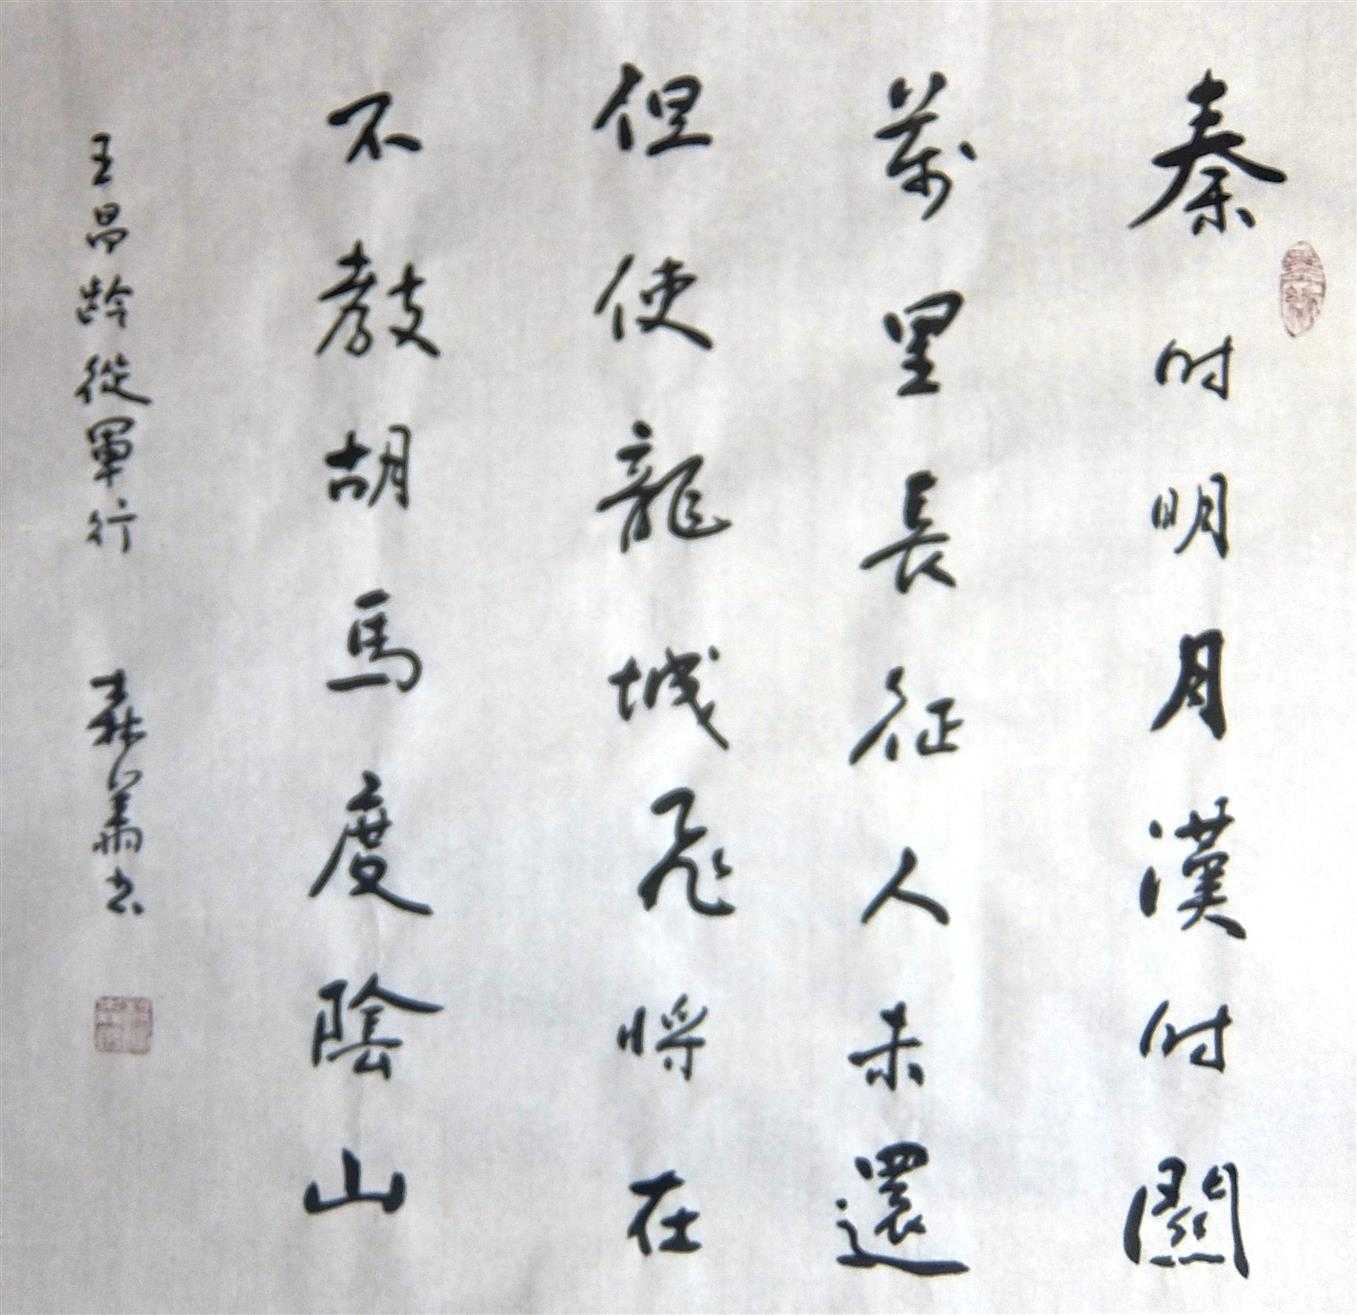 秦时明月漢时關
萬里長征人未還
但使龍城飛将在
不教胡馬度陰山
王昌龄從軍行 森蕭书